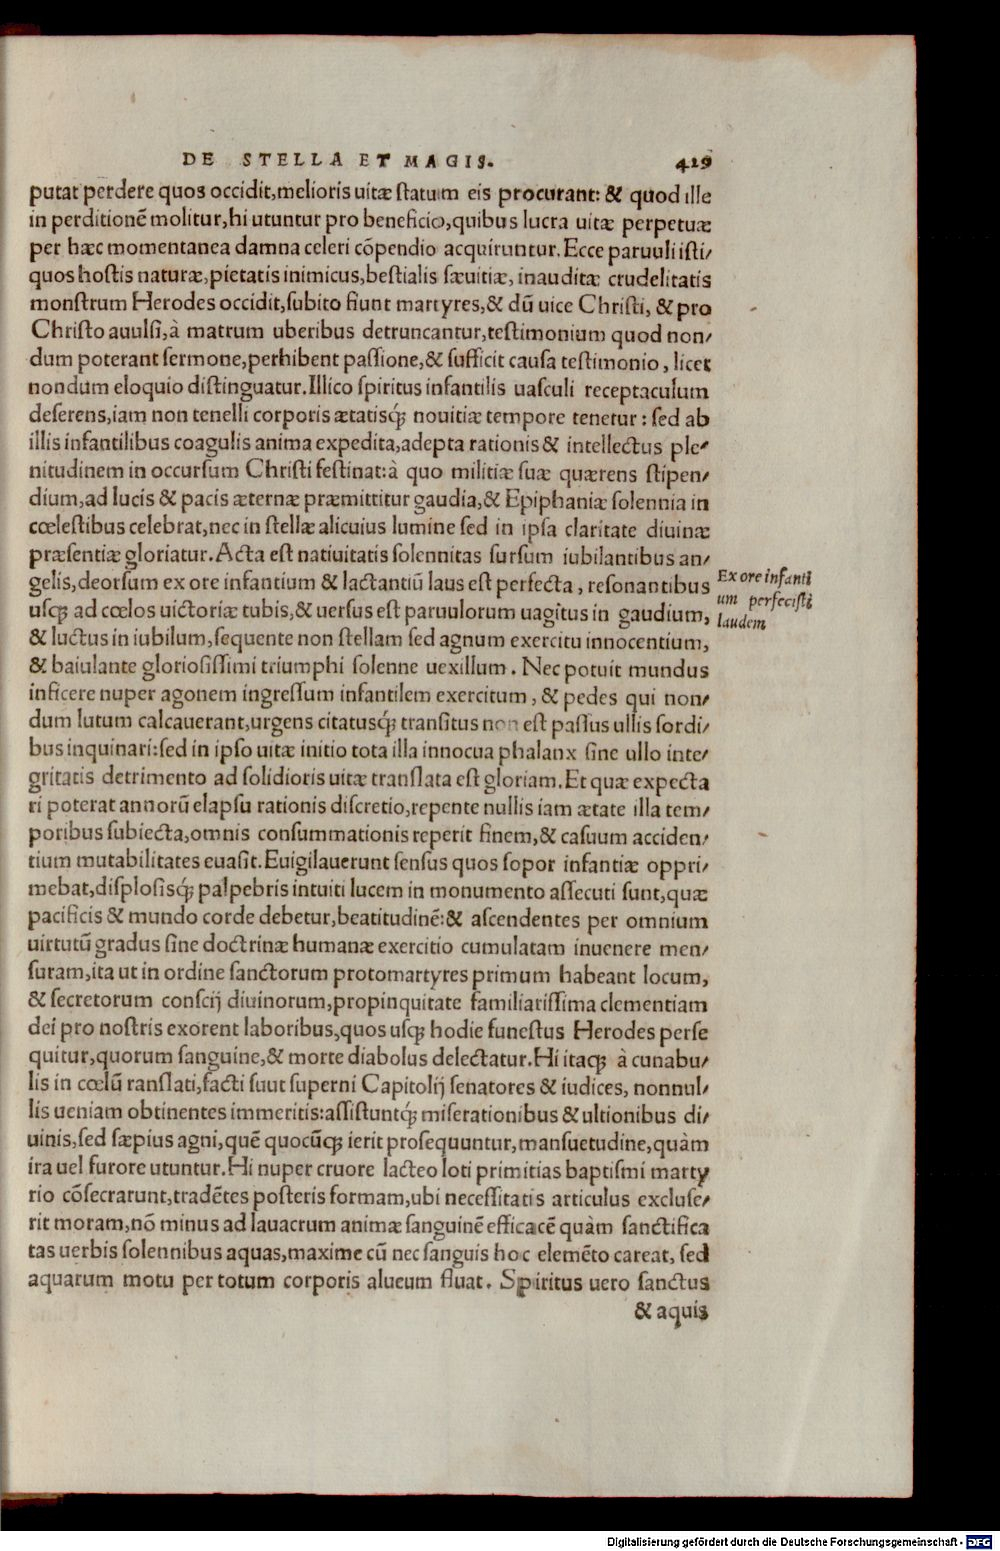 DE STELLA ET MAGIS. 419
putat perdere quos occidit,melioris uitæ ſtatum eis procurant: & quod ille
in perditionē molitur,hi utuntur pro beneficio,quibus lucra uitæ perpetuæ
per hæc momentanea damna celeri cōpendio acquiruntur.Ecce paruuli iſti/
quos hoſtis naturæ,pietatis inimicus,beſtialis ſæuitiæ, inauditæ crudelitatis
monſtrum Herodes occidit,ſubito fiunt martyres,& dū uice Chriſti, & pro
Chriſto auulſi,à matrum uberibus detruncantur,teſtimonium quod non/
dum poterant ſermone,perhibent paſſione,& ſufficit cauſa teſtimonio, licet
nondum eloquio diſtinguatur.Illico ſpiritus infantilis uaſculi receptaculum
deſerens,iam non tenelli corporis ætatisq́; nouitiæ tempore tenetur: ſed ab
illis infantilibus coagulis anima expedita,adepta rationis & intellectus ple/
nitudinem in occurſum Chriſti feſtinat:à quo militiæ ſuæ quærens ſtipen/
dium,ad lucis & pacis æternæ præmittitur gaudia,& Epiphaniæ ſolennia in
cœleſtibus celebrat,nec in ſtellæ alicuius lumine ſed in ipſa claritate diuinæ
præſentiæ gloriatur.Acta eſt natiuitatis ſolennitas ſurſum iubilantibus an/
gelis,deorſum ex ore infantium & lactantiū laus eſt perfecta, reſonantibus
uſq; ad cœlos uictoriæ tubis,& uerſus eſt paruulorum uagitus in gaudium,
& luctus in iubilum,ſequente non ſtellam ſed agnum exercitu innocentium,
& baiulante glorioſiſſimi triumphi ſolenne uexillum. Nec potuit mundus
inficere nuper agonem ingreſſum infantilem exercitum, & pedes qui non/
dum lutum calcauerant,urgens citatusq́; tranſitus non eſt paſſus ullis ſordi/
bus inquinari:ſed in ipſo uitæ initio tota illa innocua phalanx ſine ullo inte/
gritatis detrimento ad ſolidioris uitæ tranſlata eſt gloriam.Et quæ expecta
ri poterat annorū elapſu rationis diſcretio,repente nullis iam ætate illa tem/
poribus ſubiecta,omnis conſummationis reperit finem,& caſuum acciden/
tium mutabilitates euaſit.Euigilauerunt ſenſus quos ſopor infantiæ oppri/
mebat,diſploſisq́; palpebris intuiti lucem in monumento aſſecuti ſunt,quæ
pacificis & mundo corde debetur,beatitudinē:& aſcendentes per omnium
uirtutū gradus ſine doctrinæ humanæ exercitio cumulatam inuenere men/
ſuram,ita ut in ordine ſanctorum protomartyres primum habeant locum,
& ſecretorum conſcij diuinorum,propinquitate familiariſſima clementiam
dei pro noſtris exorent laboribus,quos uſq; hodie funeſtus Herodes perſe
quitur,quorum ſanguine,& morte diabolus delectatur.Hi itaq; à cunabu/
lis in cœlū ranſlati,facti ſuut ſuperni Capitolij ſenatores & iudices, nonnul/
lis ueniam obtinentes immeritis:aſſiſtuntq́; miſerationibus & ultionibus di/
uinis,ſed ſæpius agni,quē quocūq; ierit proſequuntur,manſuetudine,quàm
ira uel furore utuntur.Hi nuper cruore lacteo loti primitias baptiſmi marty
rio cōſecrarunt,tradētes poſteris formam,ubi neceſſitatis articulus excluſe/
rit moram,nō minus ad lauacrum animæ ſanguinē efficacē quàm ſanctifica
tas uerbis ſolennibus aquas,maxime cū nec ſanguis hoc elemēto careat, ſed
aquarum motu per totum corporis alueum fluat. Spiritus uero ſanctus
& aquis
Ex ore infanti
um perfeciſti
laudem
Digitalisierung gefördert durch die Deutsche Forschungsgemeinschaft - DFG